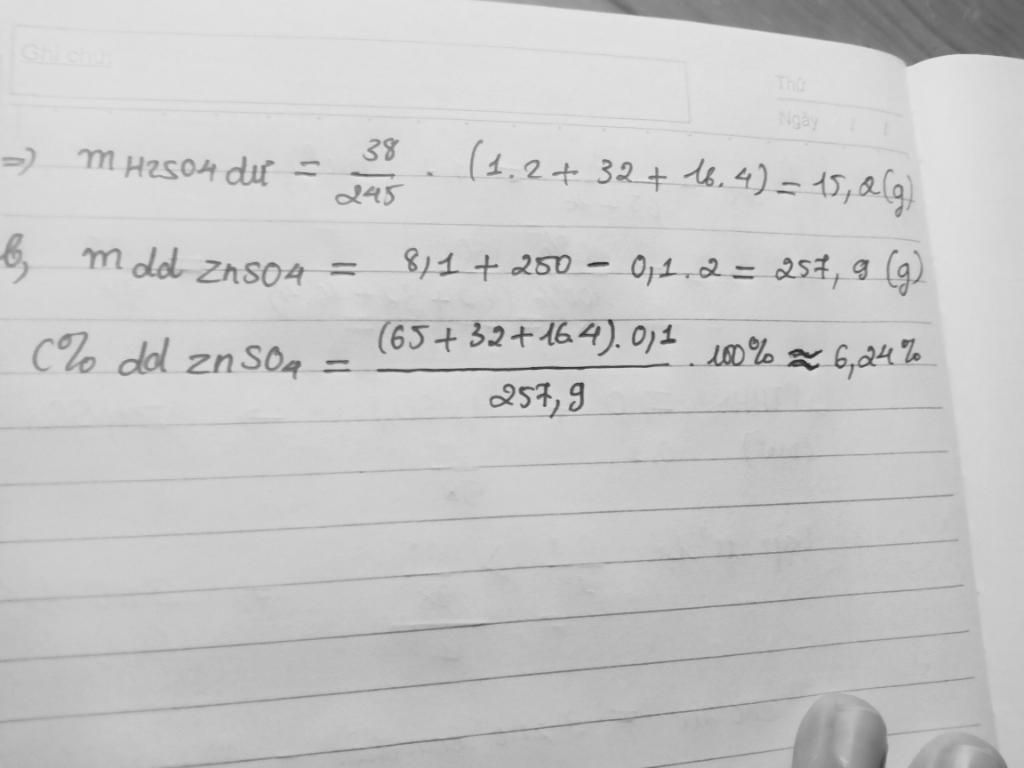 Ghi chú:
Thứ
Ngày / /
=> m H2SO4 dư = 38/245 . (1.2 + 32 + 16.4) = 15,2(g)
b, m dd ZnSO4 = 8,1 + 250 - 0,1.2 = 257,9 (g)
C% dd ZnSO4 = (65 + 32 + 16.4).0,1/257,9 . 100% ≈ 6,24%